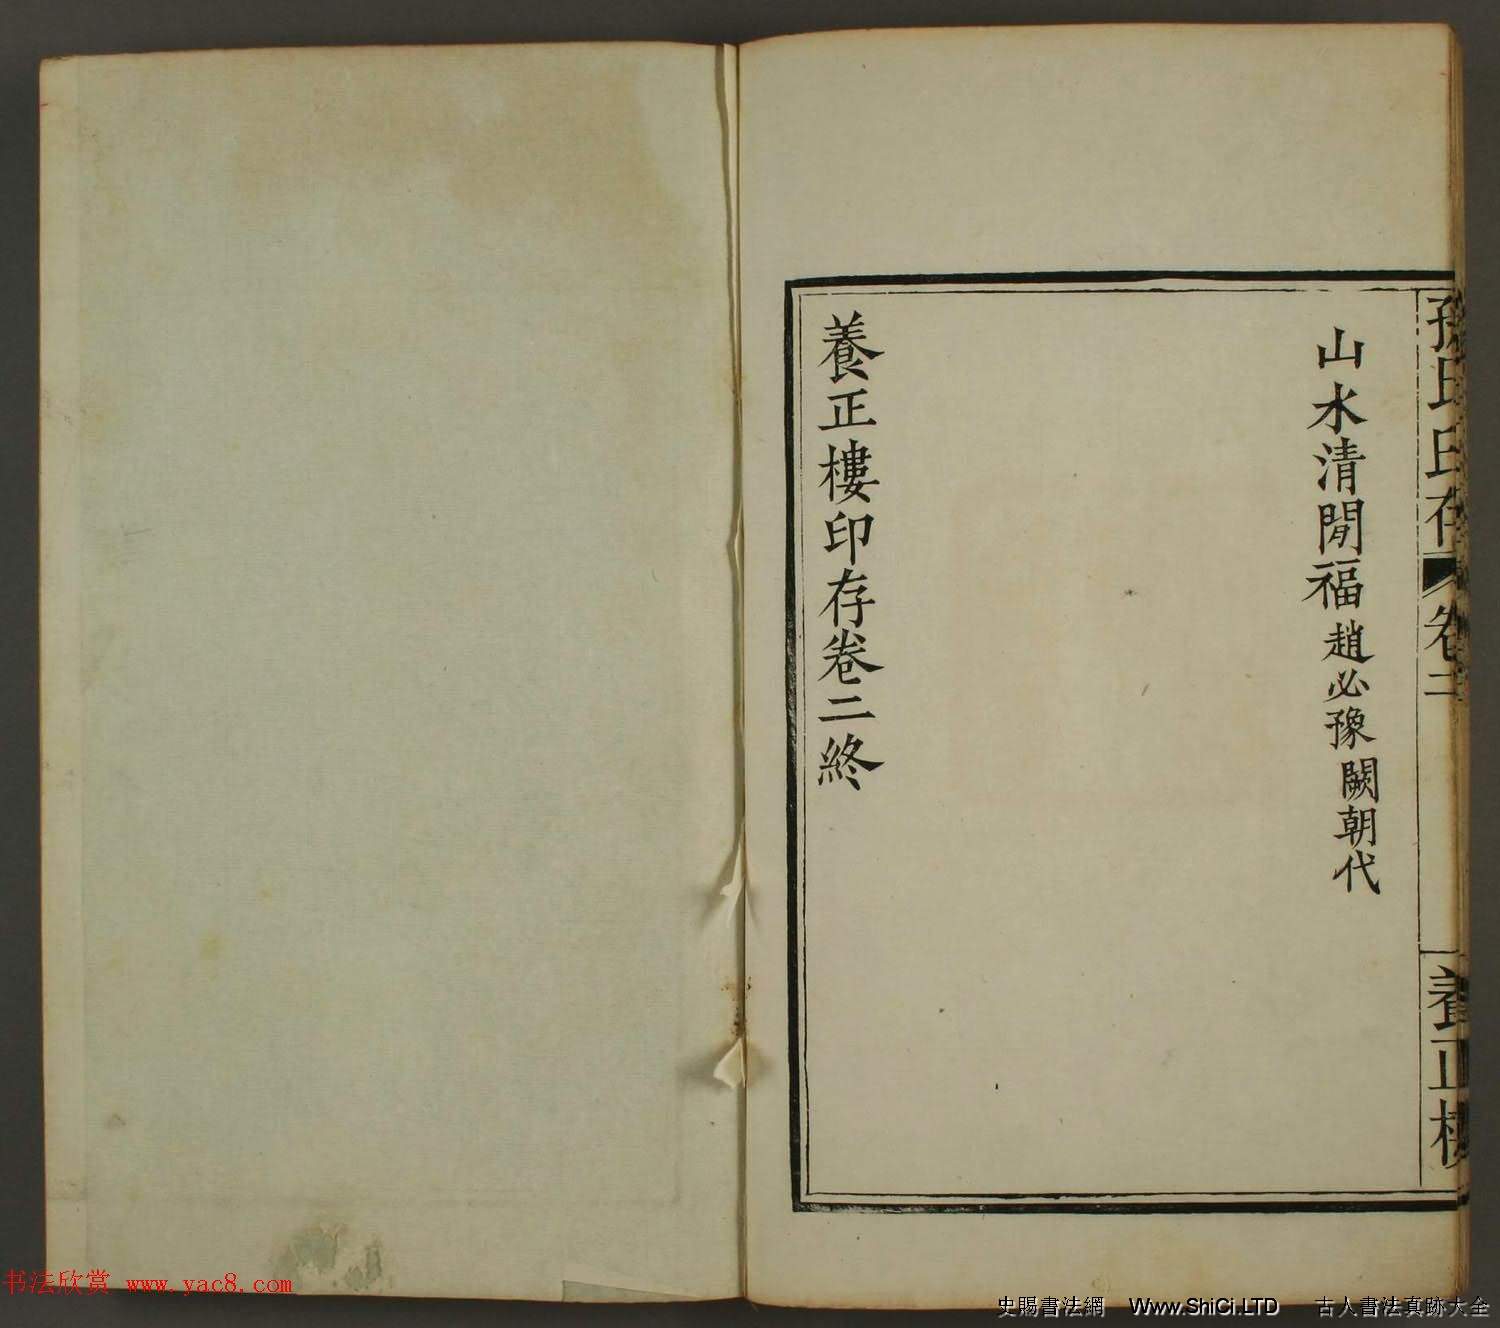 孫氏印存 卷二 養正樓
山水清閒福 趙必豫 闕朝代
養正樓印存卷二終
书法欣赏 www.yac8.com
史賜書法網 Www.ShiCi.LTD 古人書法真跡大全